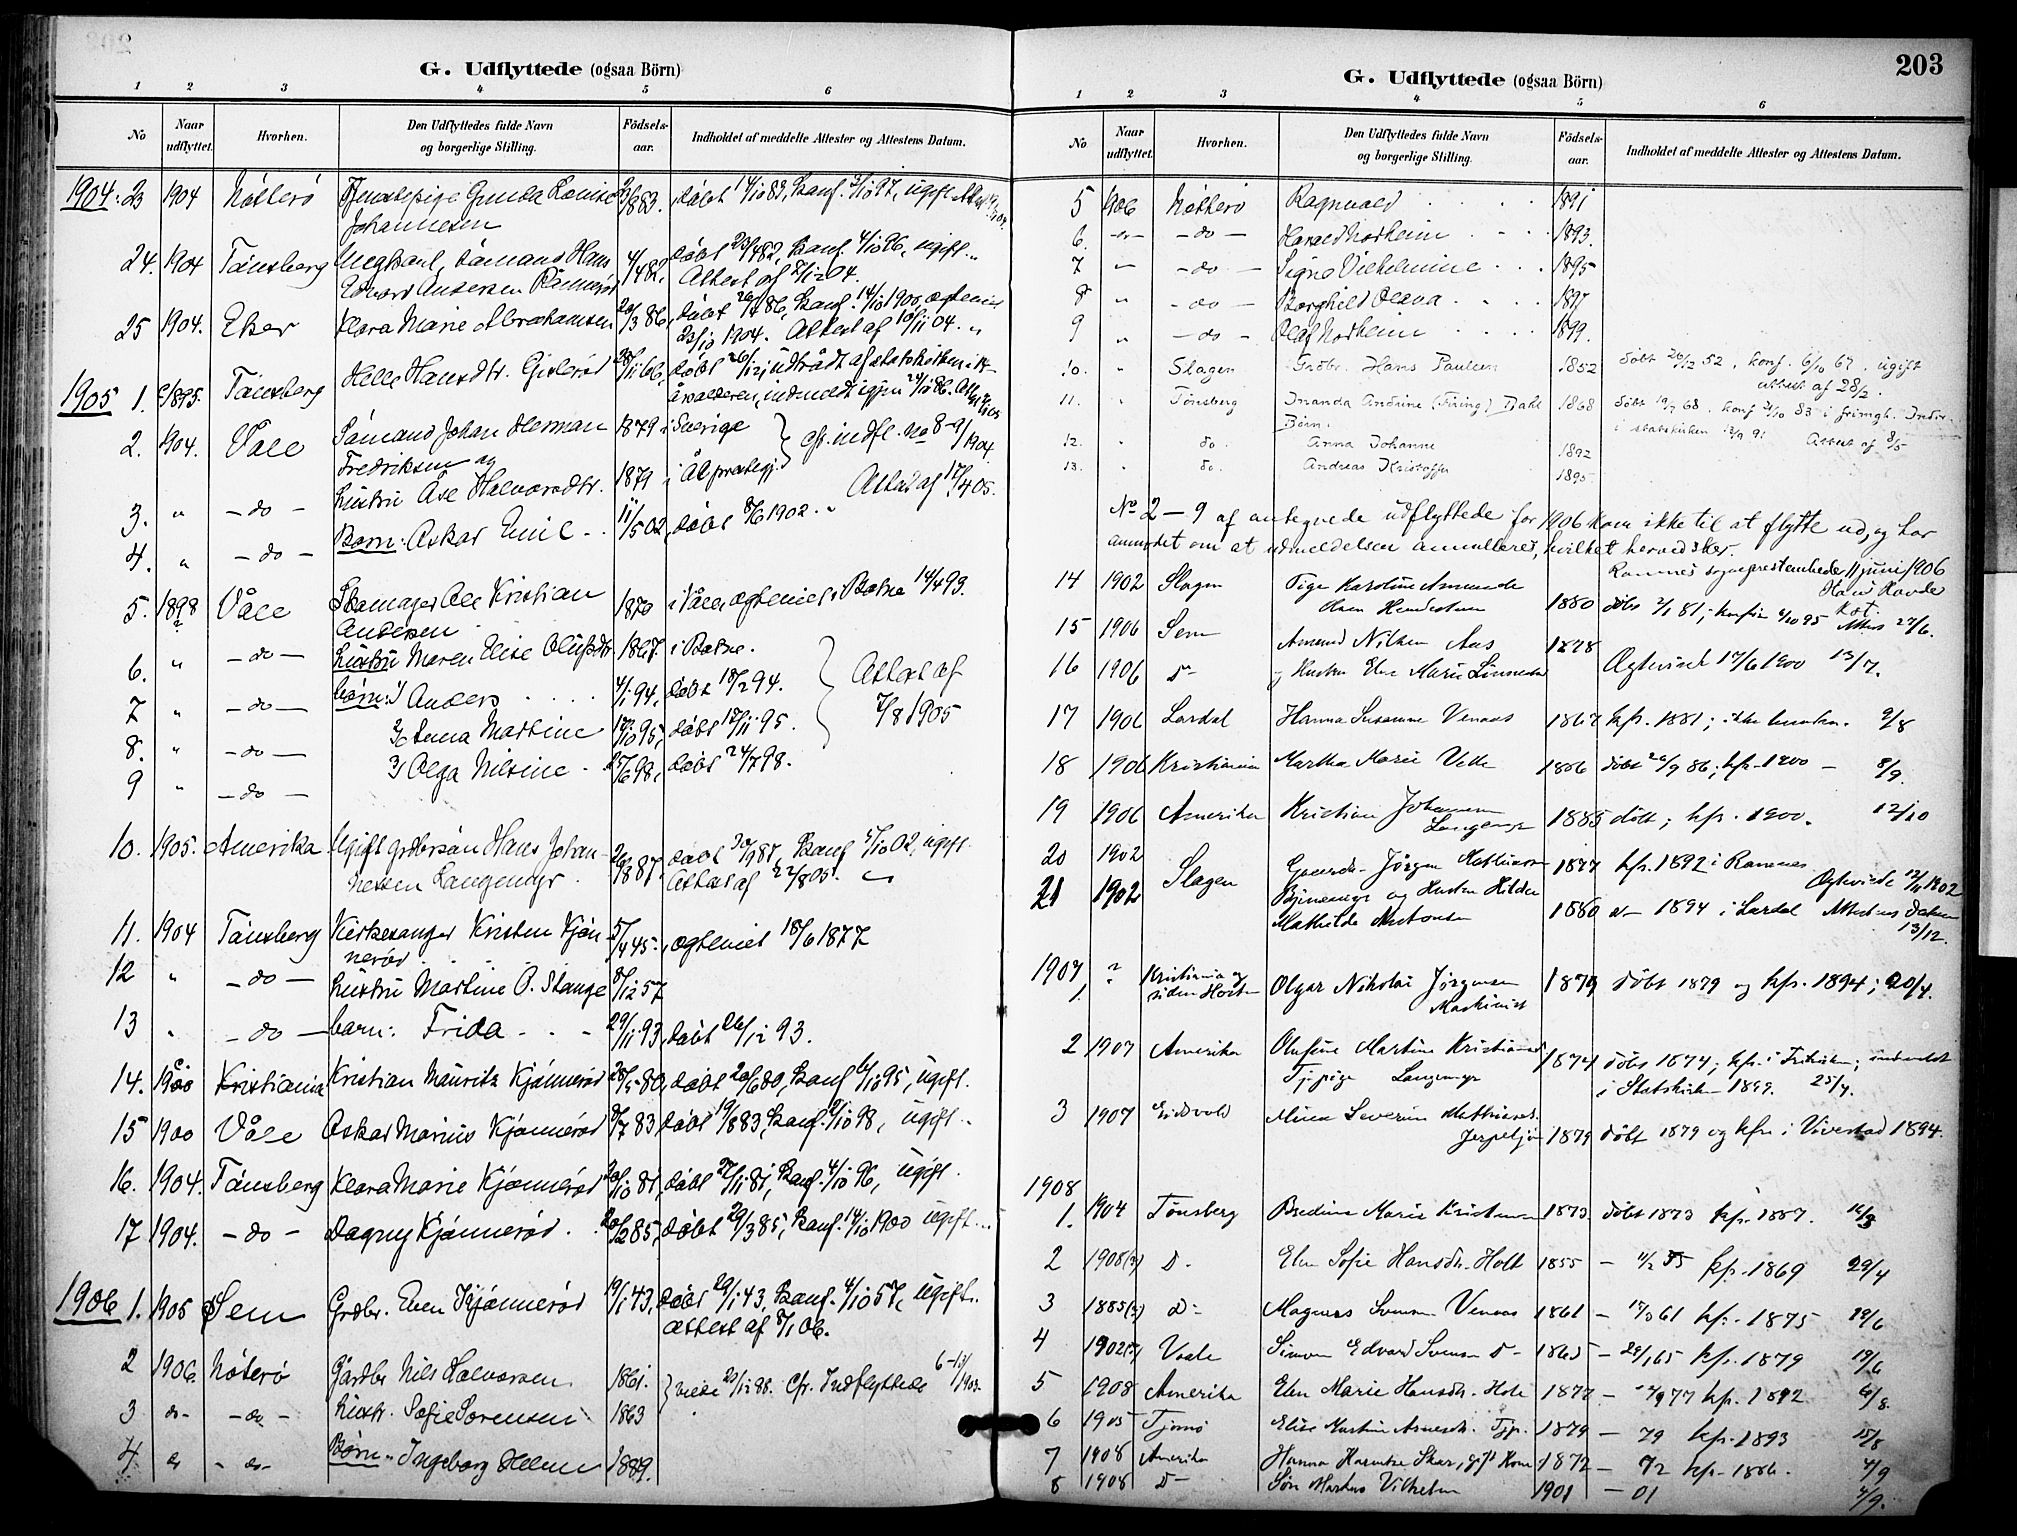 G. Udflyttede (ogsaa Börn)
1 2 3 4 5 6
No Naar udflyttet. Hvorhen. Den Udflyttedes fulde Navn og borgerlige Stilling. Födsels-aar. Indholdet af meddelte Attester og Attestens Datum.
1904. 23 1904 Nøtterø Tjenestepige Gunda Lovise 1883. døbt 14/10 83, konf. 3/10 97, ugift.
Johannesen
24. 1904 Tønsberg Ungkarl, Sømand Hans 4/4 82, døbt 23/4 82, konf. 4/10 96, ugift
Edvard Andersen Attest af 8/12 04.
25 1904. Eker Klara Marie Abrahamsen 20/3 86, døbt 26/4 86, konf. 14/10 1900, ægteviet
23/10 1904. Attest af 10/11 04.
1905 1. 1895. Tønsberg Helle Hansdtr. Gislerød 28/11 66, døbt 26/12, udtrådt af statskirken i
indmeldt igjen
2. 1904. Våle Sømand Johan Herman 1879 i Sverige cfr. indfl. no 8-9/1904.
Fredriksen og
3. " -do- hustru Åse Halvorsdtr. 1871 i Ål prestegj. Attest af 17/4 05.
4. " -do- Barn: Oskar Emil 11/5 02, døbt 8/6 1902.
5. 1898 ? Våle Skomager Ole Kristian 1870 i Våle, ægteviet i Botne 14/4 93.
Andersen
6. " -do- hustru Maren Elise Olufsdtr. 1867. i Botne.
7 " -do- børn: 1) Anders 4/1 94, døbt 18/2 94. Attest af
8. " -do- 2) Anna Martine 17/10 95, døbt 17/11 95. 7/8 1905
9 " -do- 3) Olga Nilsine 25/6 98, døbt 24/7 98.
10. 1905. Amerika Ugift grdbrsøn Hans Johan- 26/8 87. døbt 30/9 87, konf. 5/10 02, ugift.
nessen Langemyr Attest af 22/8 05.
11. 1904 Tønsberg Kirkesanger Kristen Kjøn- 5/4 45, ægteviet 18/6 1877
nerød
12 " -do- hustru Martine O. Stange 8/12 57
13 " -do- barn: Frida 29/11 93, døbt 26/12 93.
14. 1900 Kristiania Kristian Mauritz Kjønnerød 28/5 80, døbt 20/6 80, konf. 6/10 95, ugift.
15 1900 Våle Oskar Marius Kjønnerød 8/7 83 døbt 19/8 83, konf. 2/10 98, ugift
16. 1904. Tønsberg Klara Marie Kjønnerød 20/10 81, døbt 27/11 81, konf. 4/10 96, ugift.
17 1904. -do- Dagny Kjønnerød 20/2 85, døbt 29/3 85, konf. 14/10 1900 ugift
1906 1. 1905 Sem Grdbr. Even Kjønnerød 19/1 43, døbt 29/1 43, konf. 4/10 57, ugift.
Attest af 8/1 06.
2 1906. Nøterø Gårdbr Nils Halvorsen 1861. viede 28/12 88. Cfr. Indflyttede 6-13/1903.
3 do- -do- hustr. Sofie Sørensen 1863
4. do - do- Børn Ingeborg Helene 1889.
G. Udflyttede (ogsaa Börn) 203
1 2 3 4 5 6
No Naar udflyttet. Hvorhen. Den Udflyttedes fulde Navn og borgerlige Stilling. Födsels-aar. Indholdet af meddelte Attester og Attestens Datum.
5 1906 Nøtterø Ragnvald 1891
6. -do- -do- Harald Nordheim 1893.
7 " -do- Signe Vilhelmine 1895
8 " -do- Borghild Olava 1897
9 " -do- Olaf Nordheim 1899.
10. " Slagen Grdbr. Hans Paulsen 1852 døbt 26/12 52, konf. 6/10 67, ugift
attest af 28/2.
11. " Tønsberg Inanda Andrine (Firing) Dahl 1868 døbt 19/7 68. konf 7/10 83 i frimgh. Indtr.
Børn. i statskirken 13/9 91 Attest af 8/5
12. " do. Anna Johanne 1892
13. " do. Andreas Kristoffer 1895
No 2-9 af antegnede udflyttede for 1906 kom ikke til at flytte ud, og har
anmodet om at udmeldelsen annulleres, hvilket herved sker.
Ramnes sogneprestembede, 11 juni 1906
14 1902 Slagen Pige Karoline Amunda 1880 døbt 2/1 81; konfir 6/10 95 Attest 27/6.
Olsen
15 1906 Sem Amund Nilsen Aas 1878
16 1906 D- og Hustru Else Marie Ægteviet 17/6 1900 13/7.
17 1906 Lardal Hanna Susanne Venaas 1867 kfr. 1881; ikke bunden. 9/8
18 1906 Kristiania Martha Marie 1886 døbt 26/9 86; kfr. 1900 - 8/9.
19 1906 Amerika Kristian Johannesen 1885 døbt; kfr. 1900. 12/10
Langemyr
20 1902 Slagen Gaardbr. Jørgen Mathiasen 1877 kfr. 1892 i Ramnes
21 1902 og Hustru Hilda Ægteviede 1902
Mathilde Antonsen 1880 d- 1894 i Lardal Attestens Datum
13/12.
1907 1. ? Kristiania og Olgar Nikolai Jørgensen 1879 døbt 1879 og kfr. 1894; 20/4.
siden Horten Maskinist
2 1907 Amerika Olufine Martine Kristiansd 1874 døbt 1874; kfr. i Frikirken; indmeldt
Tjpige Langemyr i Statskirken 1899. 25/4.
3 1907 Eidsvold Mina Severine Mathiasd. 1879 døbt 1879 og kfr. i Vivestad 1894.
1908
1. 1904 Tønsberg Bredine Marie Kristensen 1873. døbt 1873 kfr. 1887. 16/3
2 1908(?) D- Elen Sofie Hansdtr. Holt 1855 - 11/2 55 kfr. 1869 29/4
3 1885(?) D- Magnus Svensen Venaas 1861 - 17/3 61 kfr. 1875 19/6
4 1902(?) Vaale Simon Edvard Svensen D- 1865 - 29/1 65 kfr. 1879 19/6
5 1908 Amerika Elen Marie Hansdtr. Holt 1877 - /9 77 kfr. 1892 6/8.
6 1905 Tjømø Elise Martine Tjp. 1879 - 79 kfr. 1893 15/8
7 1908 Amerika Hanna Skar, gift Kone 1872 - 72 kfr. 1886. 4/9
8 1908 D- Søn Markus Vilhelm 1901 - 01 4/9.